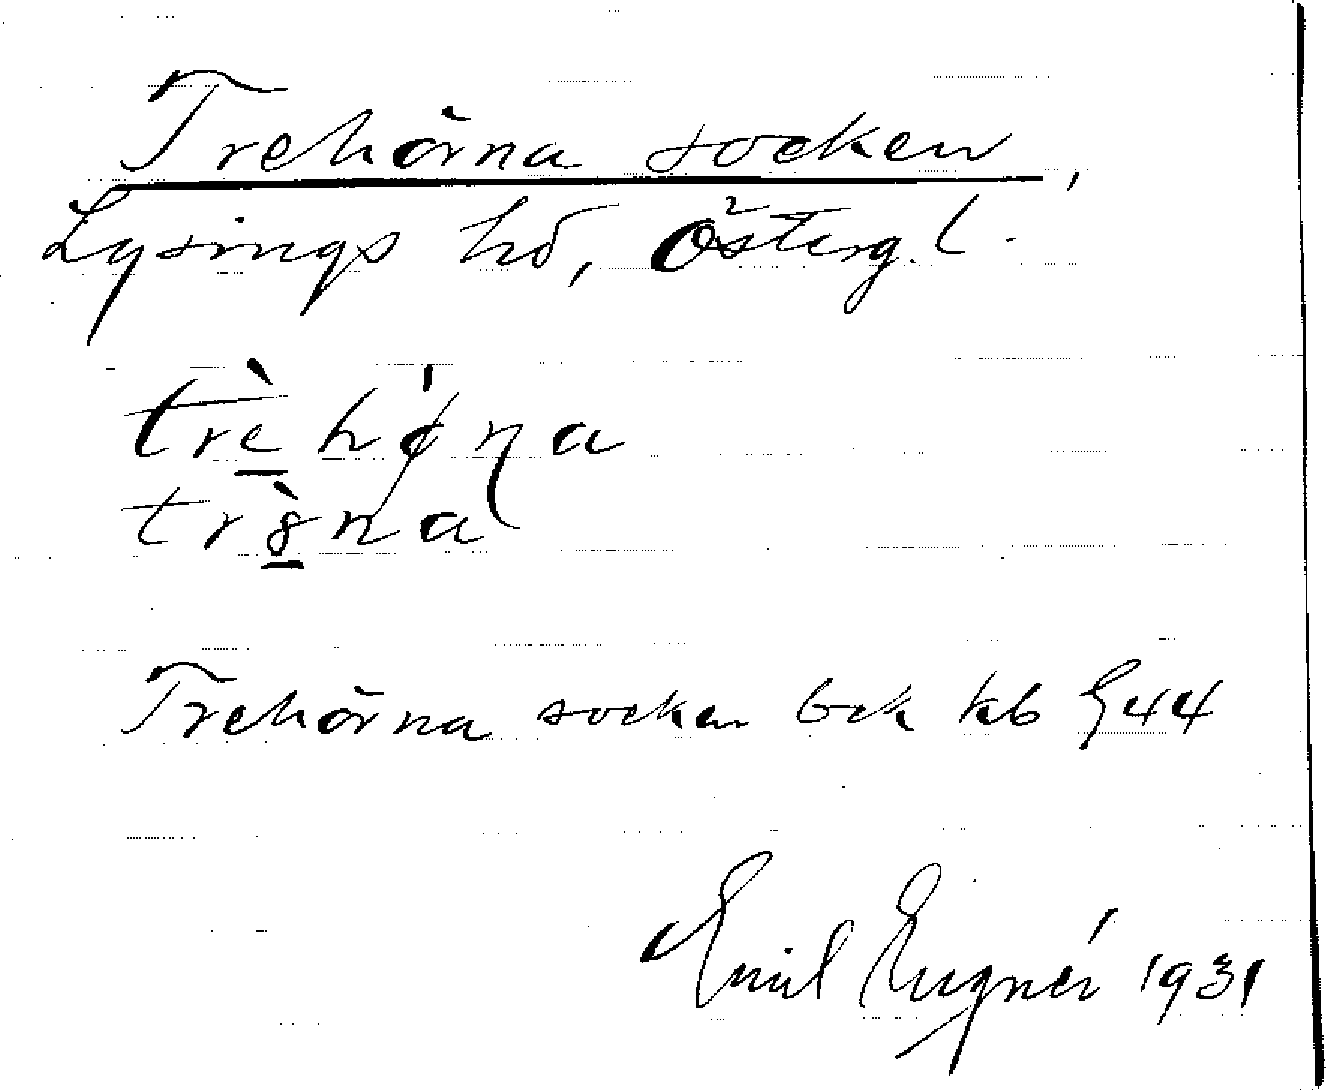 Trehörna socken,
Lysings hd, Östergl.
trè̲hǿɳa
trò̲na
Trehörna socken bek kb §44
Emil Eugnér 1931